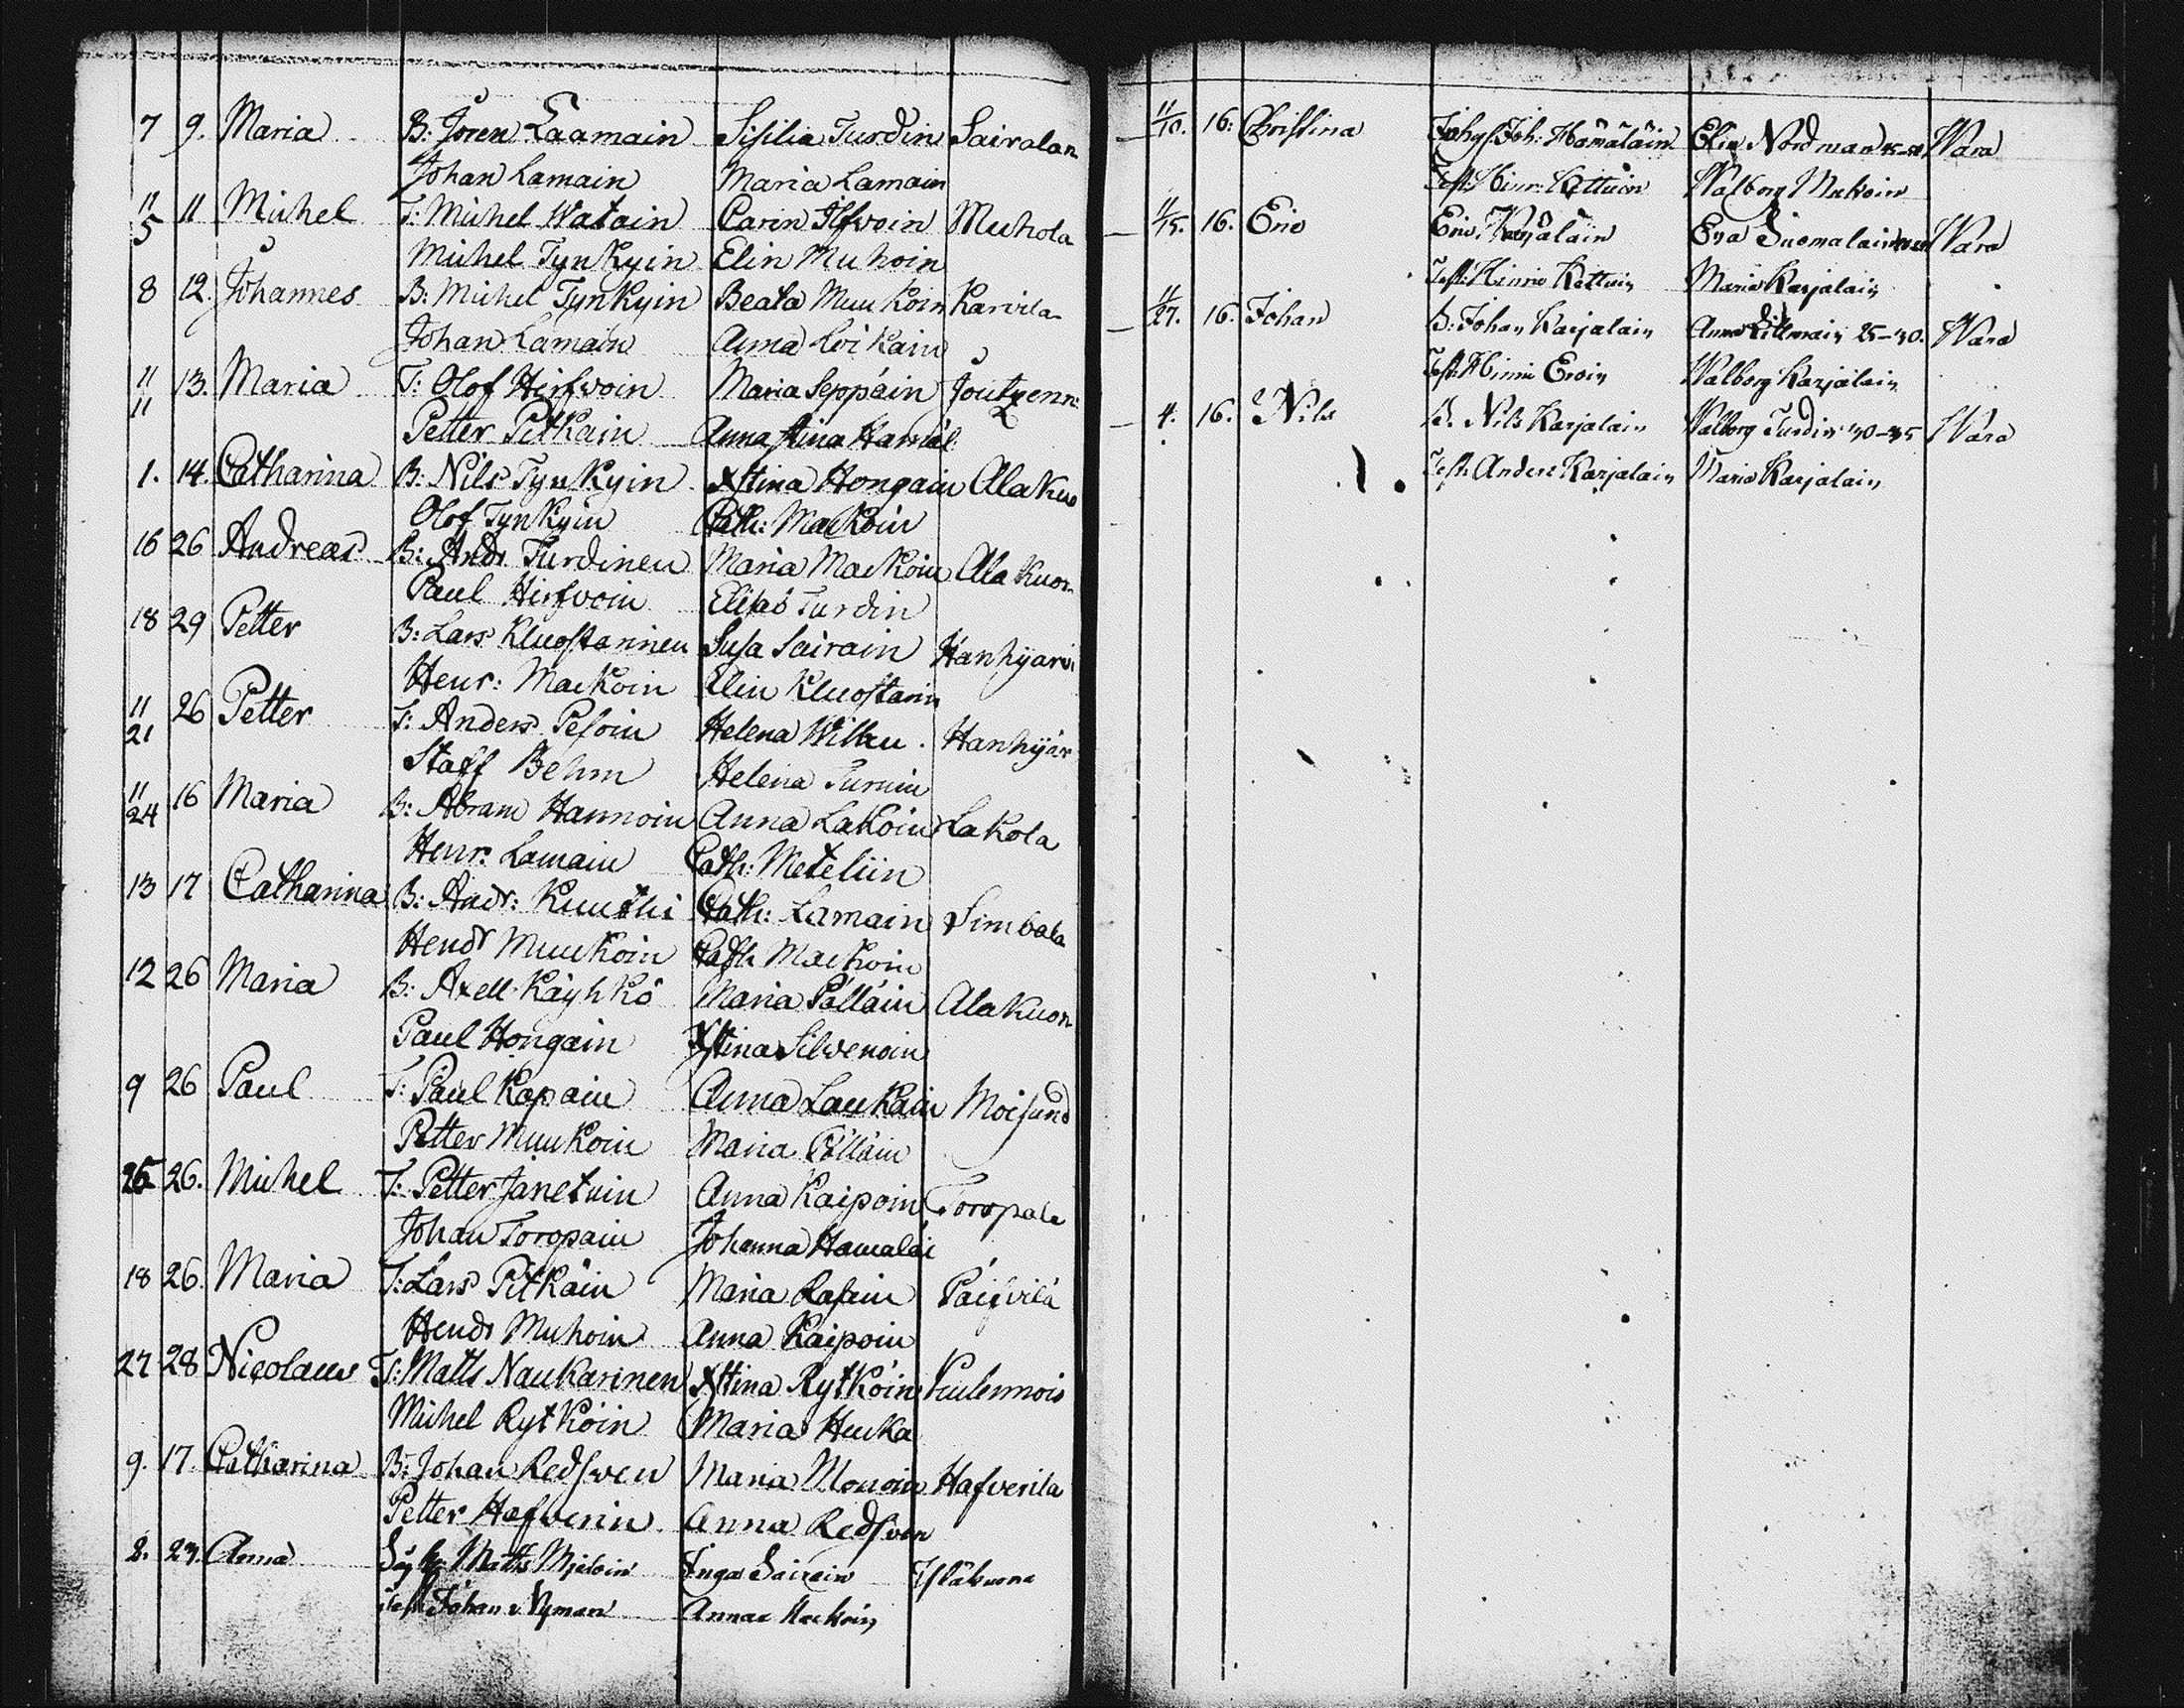 7 9. Maria B: Jören Laamain Sisilia Turdin Sairalan
Johan Lamain Maria Lamain
11/5 11 Michel T: Michel Watain Carin Ilfwoin Muhola
Michel Tynkyin Elin Muhoin
8 12. Johannes B: Michel Tynkyin Beata Muukoin Karvila
Johan Lamain Anna Loikain
11/11 13. Maria T: Olof Hirfwoin Maria Seppäin Joutzenn:
Petter Pitkäin Anna Stina Hamäl:
1. 14. Catharina B: Nils Tynkyin Xstina Hongain Alakuo
Olof Tynkyin Cath: Mackoin
16 26 Andreas B: Andr. Turdinen Maria Mackoin Ala Kuon
Paul Hirfvoin Elisab Turdin
18 29 Petter B: Lars Kluostarinen Susa Sairain Hanhijarvi
Henr: Mackoin Elin Kluostarin
11/21 26 Petter T: Anders Pesoin Helena Willru. Hanhijär
Staff Behm Helena Turuin
11/24 16 Maria B: Abram Hannoin Anna Lakoin Lakola
Henr: Lamain Cath: Meteliin
13 17 Catharina B: Andr: Cath: Lamain Simbala
Hendr Muukoin Cath Mackoin
12 26 Maria B: Axell Käyhkö Maria Pälläin Alakuon
Paul Hongain Xstina Silvenoin
9 26 Paul T: Paul Kapain Anna Laukain Moisund
Petter Muukoin Maria Pälläin
25 26. Michel T: Petter Janetuin Anna Kaipoin Toropala
Johan Toropain Johanna Hamaläi
18 26. Maria T: Lars Pitkäin Maria Rasain Päifvilä
Hendr Muhoin Anna Kaipoin
27 28 Nicolaus T: Matts Naukarinen Xstina Rytköin Kulennois
Michel Rytköin Maria Huuka
9. 17. Catharina B: Johan Redsven Maria Monoin Hafverila
Petter Hafverin Anna Redsven
2. 29. Anna Matts Inga Sairain
Test Johan Nyman Anna Mackoin
11/10. 16: Christina Joh: Hämäläin Elin Nordman Wära
Test: Hinr: Kettuin Walborg Mukoin
11/15. 16. Eric Eric Karjalain Eva Suomalain Wära
Test: Hinric Kettuin Maria Karjalain
11/27. 16. Johan B: Johan Karjalain Anna 25–30. Wära
Test: Hinric Eroin Walborg Karjalain
4. 16. Nils B. Nils Karjalain Walborg Turdin 30–35 Wära
Test: Anders Karjalain Maria Karjalain